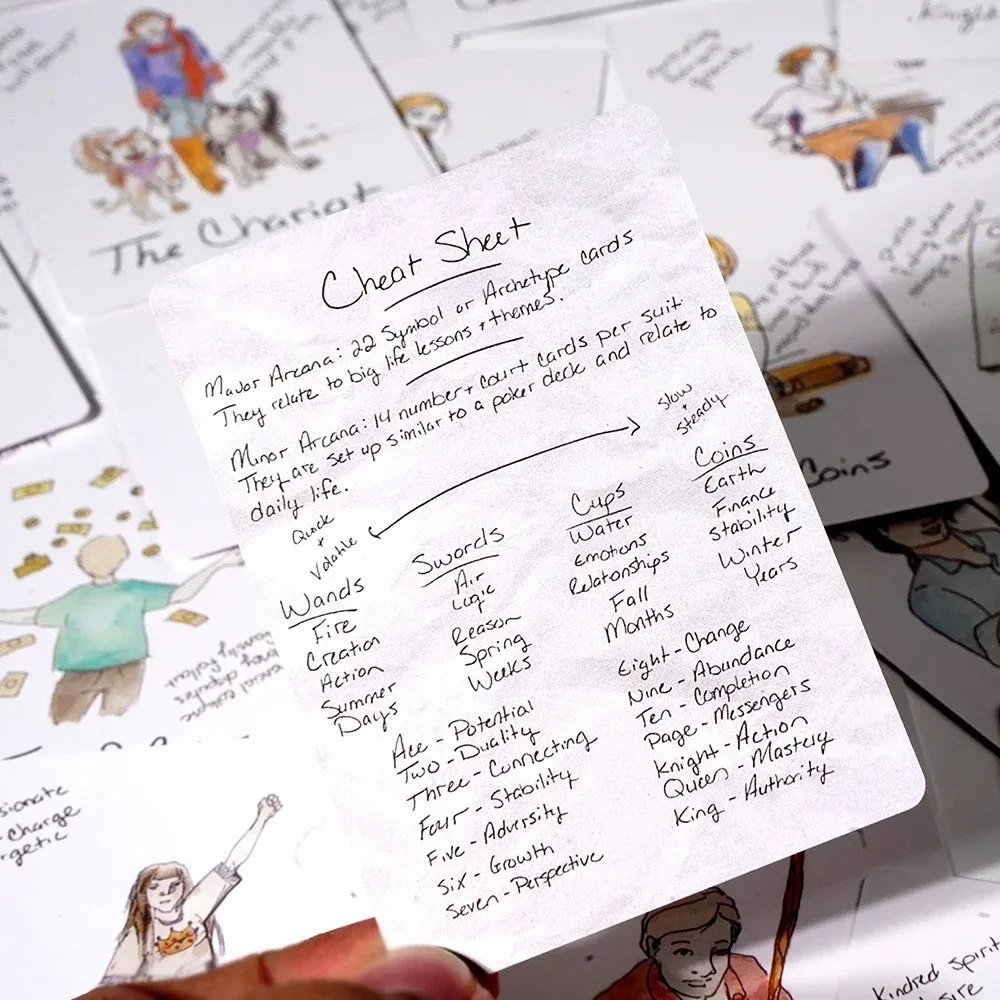 The Chariot
Knight
Cheat Sheet
Major Arcana: 22 Symbol or Archetype cards
They relate to big life lessons + themes.
Minor Arcana: 14 number + court cards per suit
They are set up similar to a poker deck and relate to
daily life.
Quick
+
Volatile
Slow
+
Steady
Wands
Fire
Creation
Action
Summer
Days
Swords
Air
Logic
Reason
Spring
Weeks
Cups
Water
Emotions
Relationships
Fall
Months
Coins
Earth
Finance
Stability
Winter
Years
Ace - Potential
Two - Duality
Three - Connecting
Four - Stability
Five - Adversity
Six - Growth
Seven - Perspective
Eight - Change
Nine - Abundance
Ten - Completion
Page - Messengers
Knight - Action
Queen - Mastery
King - Authority
Coins
Charge
Kindred Spirit